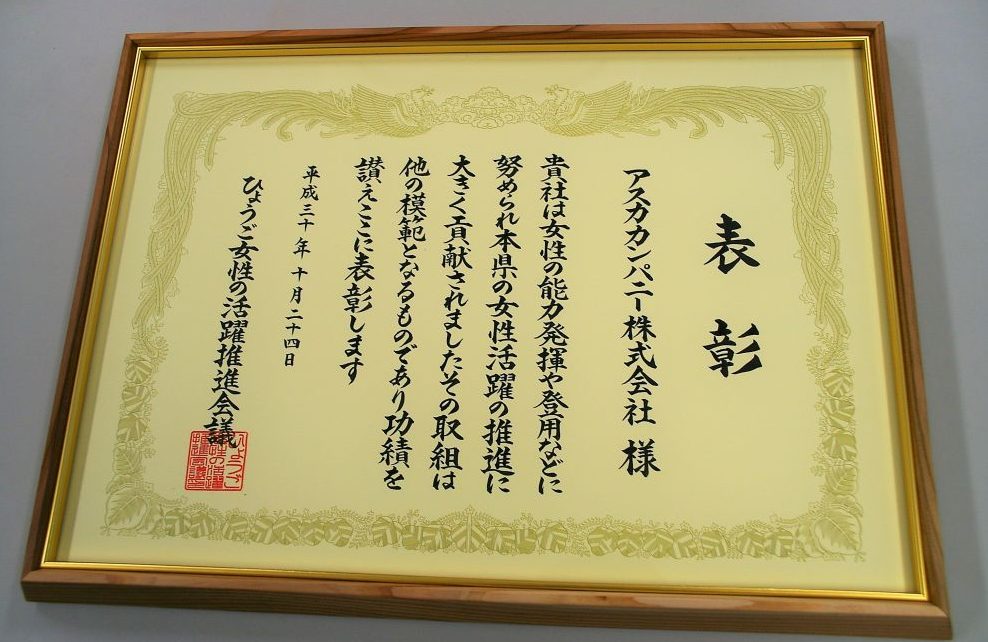 表彰
アスカカンパニー株式会社 様
貴社は女性の能力発揮や登用などに
努められ本県の女性活躍の推進に
大きく貢献されましたその取組は
他の模範となるものであり功績を
讃えここに表彰します
平成三十年十月二十四日
ひょうご女性の活躍推進会議